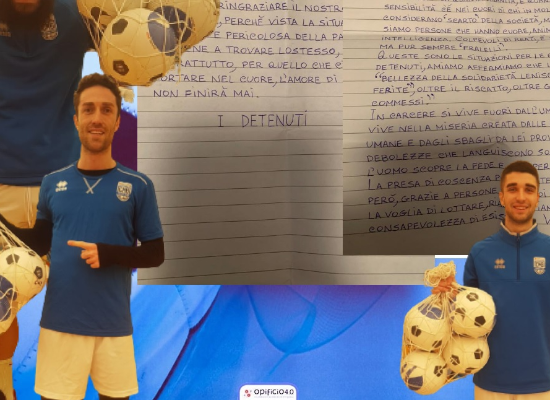 RINGRAZIARE IL NOSTR
PERCHÉ VISTA LA SITU
E PERICOLOSA DELLA PA
IENE A TROVARE LOSTESSO,
RATTUTTO, PER QUELLO CHE
ORTARE NEL CUORE, L'AMORE DI
NON FINIRÀ MAI.
I DETENUTI
SENSIBILITÀ C'È NEI CUORI DI CHI IN MOL
CONSIDERANO "SCARTO" DELLA SOCIETÀ, M
SIAMO PERSONE CHE HANNO CUORE, ANIM
INTELLIGENZA. COLPEVOLI DI REATI, E
MA PUR SEMPRE "FRALELLI".
QUESTE SONO LE SITUAZIONI PER LE
DETENUTI, AMIAMO
"BELLEZZA DELLA SOLIDARIETÀ LENISC
FERITE", OLTRE IL RISCATTO, OLTRE
COMMESSI."
IN CARCERE SI VIVE FUORI DALL'UM
VIVE NELLA MISERIA CREATA DALLE
UMANE E DAGLI SBAGLI DA LEI PROVO
DEBOLEZZE CHE LANGUISCONO SO
L'UOMO SCOPRE LA FEDE E
LA PRESA DI COSCENZA
PERÒ, GRAZIE A PERSONE
LA VOGLIA DI LOTTARE,
CONSAPEVOLEZZA DI
OPIFICIO4.0